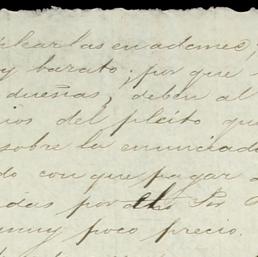 plearlas en ademas,
y barato; por que
dueñas, deben al
ios del pleito que
sobre la enunciada
do con que pagar
das por el Sr
muy poco precio.